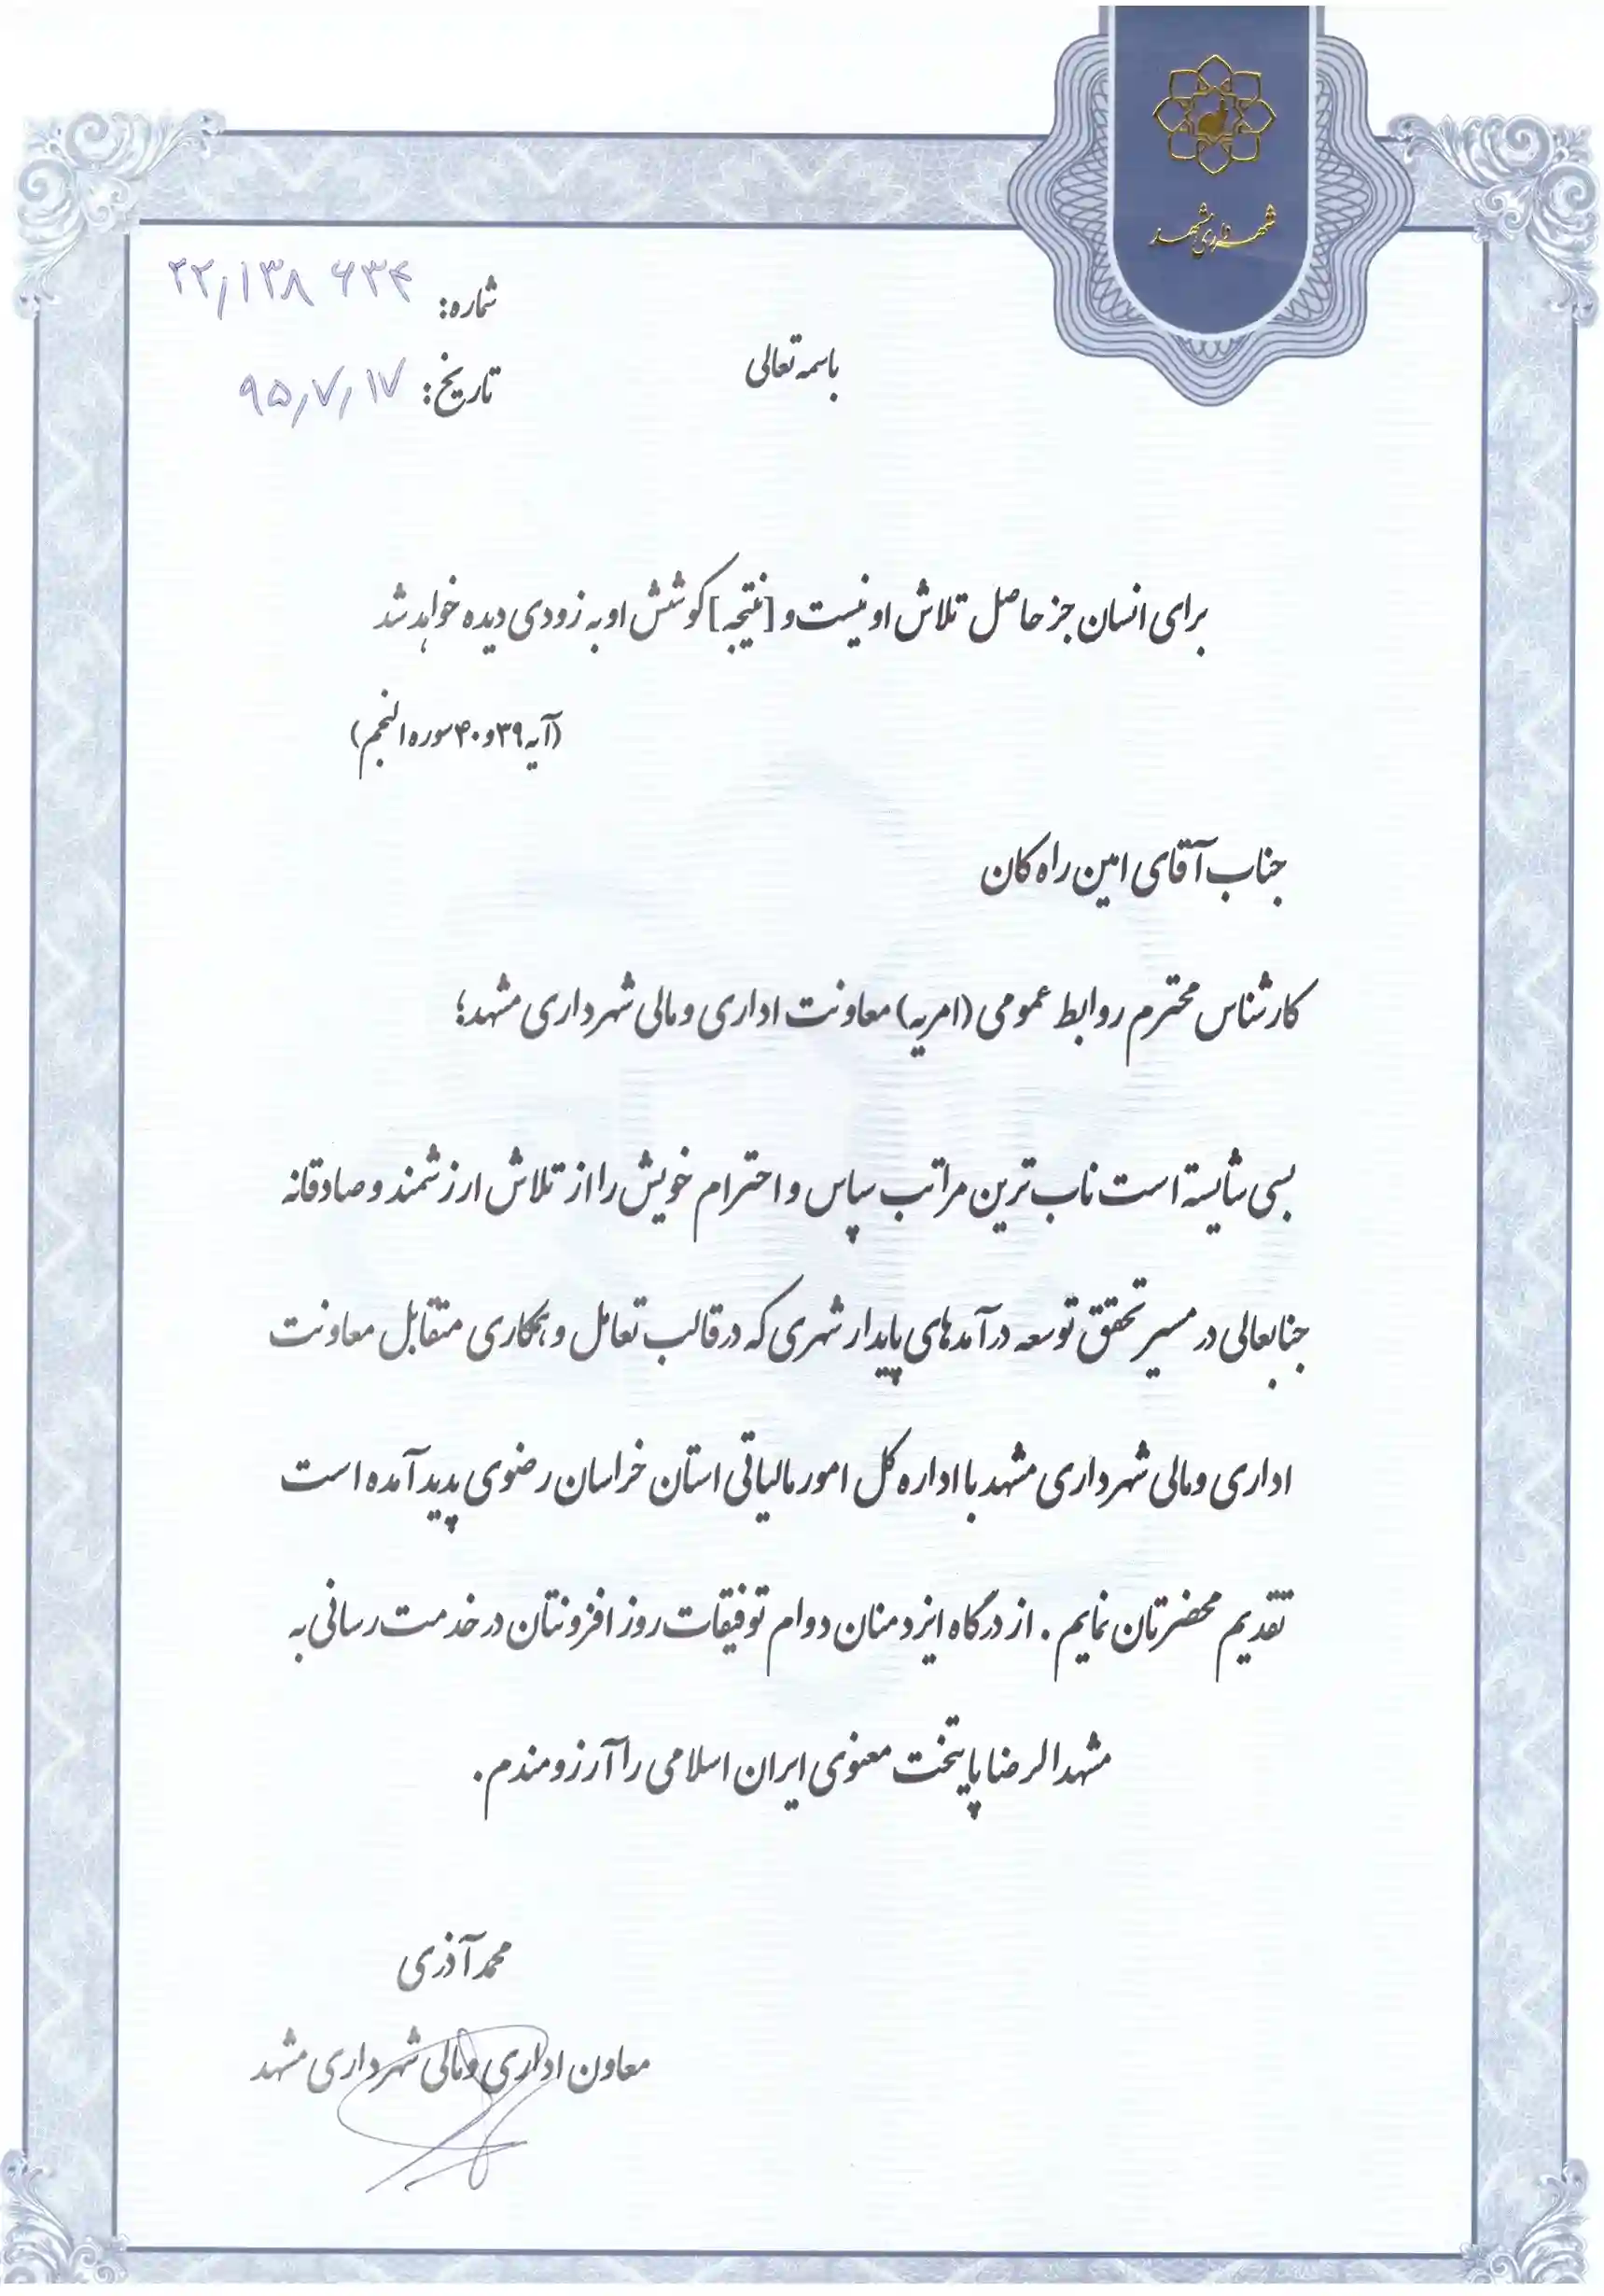 شهرداری مشهد
شماره: ۲۲/۱۳۸۶۳۴
تاریخ: ۹۵/۷/۱۷
باسمه تعالی
برای انسان جز حاصل تلاش او نیست و [نتیجه] کوشش او به زودی دیده خواهد شد
(آیه ۳۹ و ۴۰ سوره النجم)
جناب آقای امین راه کان
کارشناس محترم روابط عمومی (امریه) معاونت اداری و مالی شهرداری مشهد؛
بسی شایسته است ناب ترین مراتب سپاس و احترام خویش را از تلاش ارزشمند و صادقانه
جنابعالی در مسیر تحقق توسعه درآمدهای پایدار شهری که در قالب تعامل و همکاری متقابل معاونت
اداری و مالی شهرداری مشهد با اداره کل امور مالیاتی استان خراسان رضوی پدید آمده است
تقدیم محضرتان نمایم. از درگاه ایزد منان دوام توفیقات روز افزونتان در خدمت رسانی به
مشهد الرضا پایتخت معنوی ایران اسلامی را آرزومندم.
محمد آذری
معاون اداری و مالی شهرداری مشهد